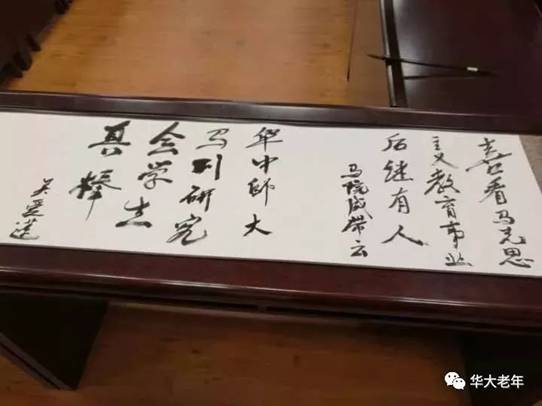 喜看马克思
主义教育事业
后继有人
马院盛带云
华中师大
马列研究
会学
真棒
华大老年